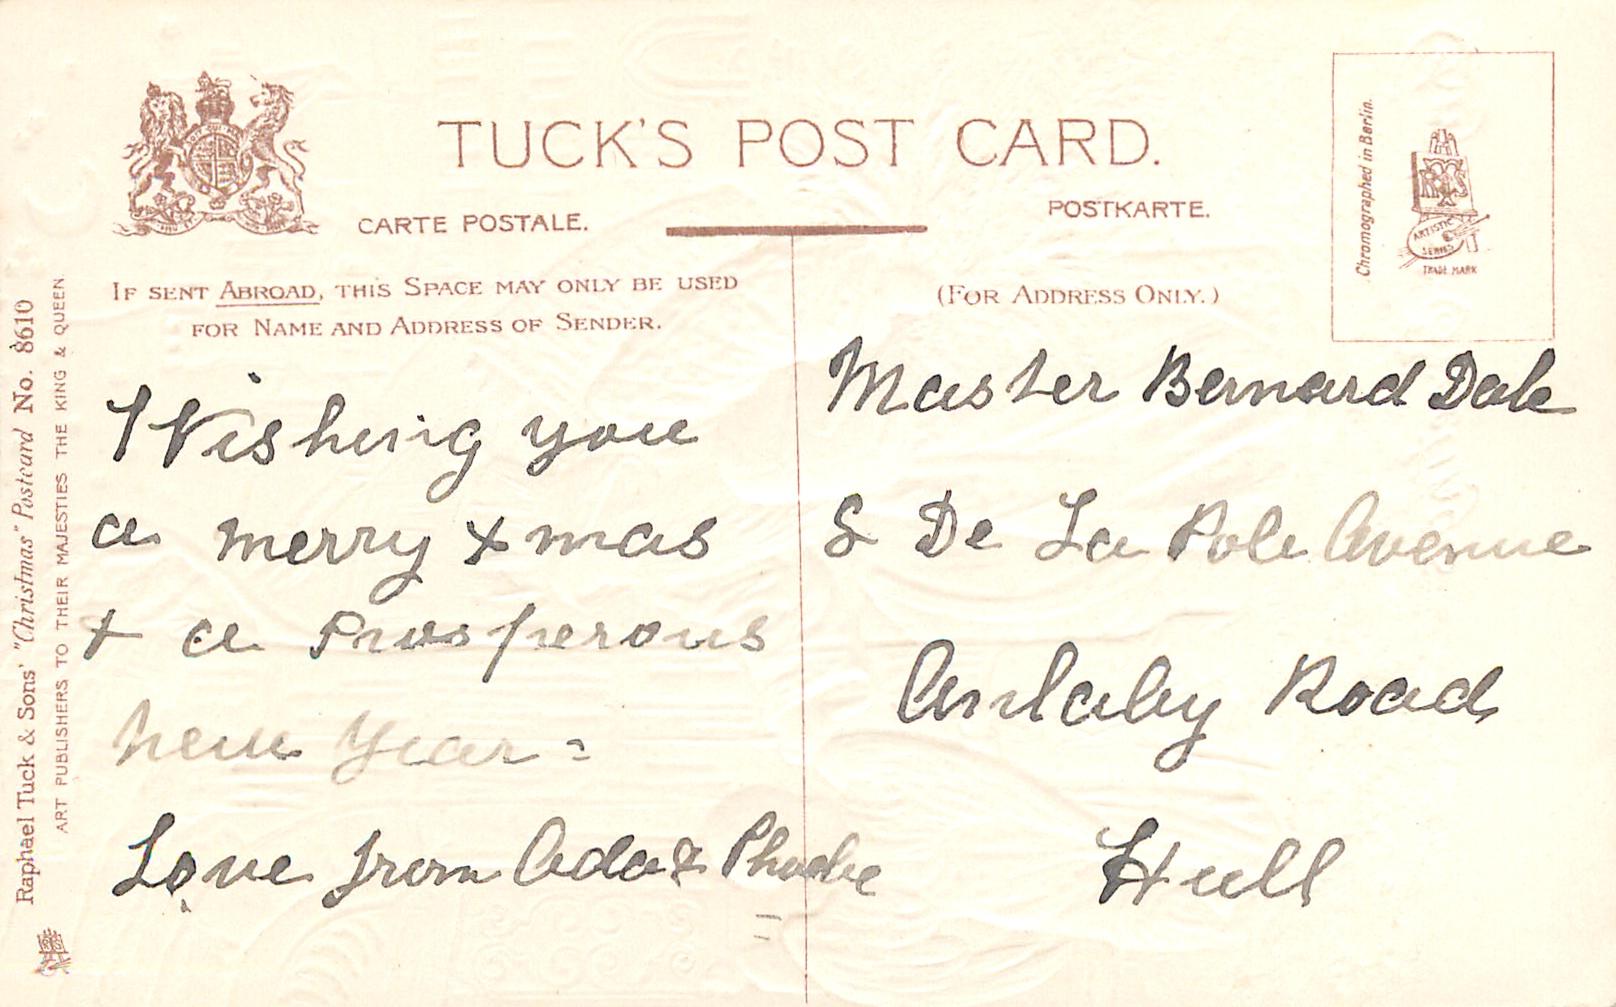 TUCK'S POST CARD.
CARTE POSTALE.
POSTKARTE.
IF SENT ABROAD, THIS SPACE MAY ONLY BE USED
FOR NAME AND ADDRESS OF SENDER.
(FOR ADDRESS ONLY.)
Chromographed in Berlin.
ARTISTIC
SERIES
TRADE MARK
Raphael Tuck & Sons' "Christmas" Postcard No. 8610
ART PUBLISHERS TO THEIR MAJESTIES THE KING & QUEEN
Wishing you
a merry xmas
& a Prosperous
new Year =
Love from Ada & Phoebe
Master Bernard Dale
8 De La Pole Avenue
Anlaby Road
Hull